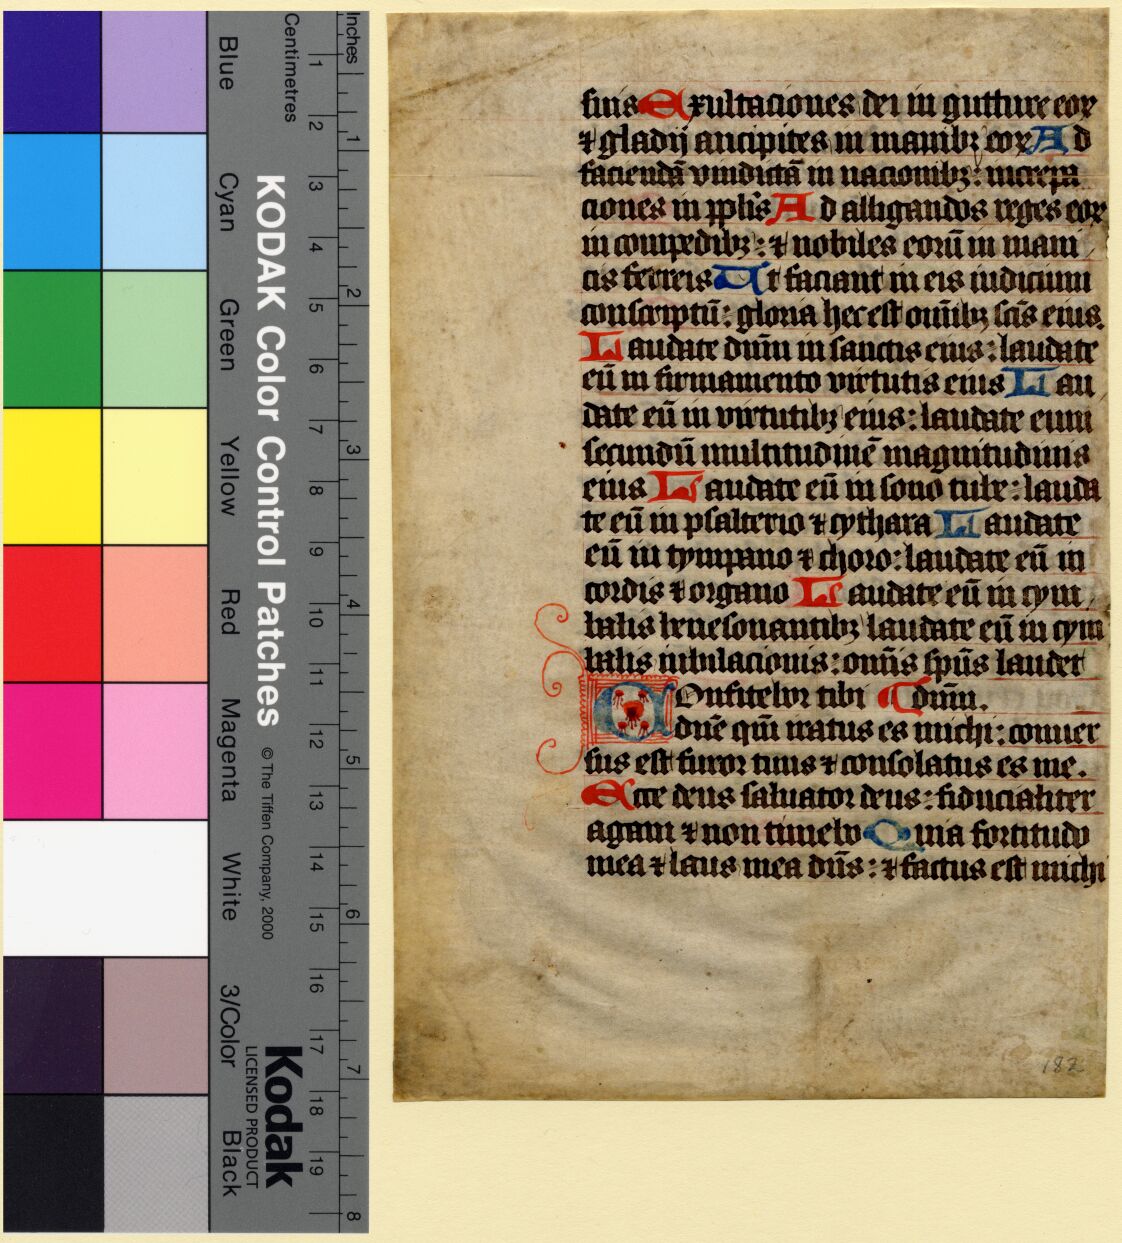 Inches
Centimetres
1 2 3 4 5 6 7 8 9 10 11 12 13 14 15 16 17 18 19
1 2 3 4 5 6 7 8
Blue
Cyan
Green
Yellow
Red
Magenta
White
3/Color
Black
KODAK Color Control Patches
© The Tiffen Company, 2000
Kodak
LICENSED PRODUCT
suis Exultaciones dei in gutture eoꝝ
⁊ gladij ancipites in manibꝫ eoꝝ Ad
faciendā vindictā in nacionibꝫ: increpa
ciones in pplis Ad alligandos reges eoꝝ
in compedibꝫ: ⁊ nobiles eorū in mani
cis ferreis Ut faciant in eis iudicium
conscriptū: gloria hec est om̄ibꝫ sc̄is eius.
Laudate dn̄m in sanctis eius: laudate
eū in firmamento virtutis eius Lau
date eū in virtutibꝫ eius: laudate eum
secundū multitudinē magnitudinis
eius Laudate eū in sono tube: lauda
te eū in psalterio ⁊ cythara Laudate
eū in tympano ⁊ choro: laudate eū in
cordis ⁊ organo Laudate eū in cym
balis benesonantibꝫ laudate eū in cym
balis iubilacionis: om̄is sp̄us laudet
Confitebor tibi dn̄m.
dn̄e qm̄ iratus es michi: conuer
sus est furor tuus ⁊ consolatus es me.
Ecce deus saluator deus: fiducialiter
agam ⁊ non timebo Quia fortitudo
mea ⁊ laus mea dn̄s: ⁊ factus est michi
182